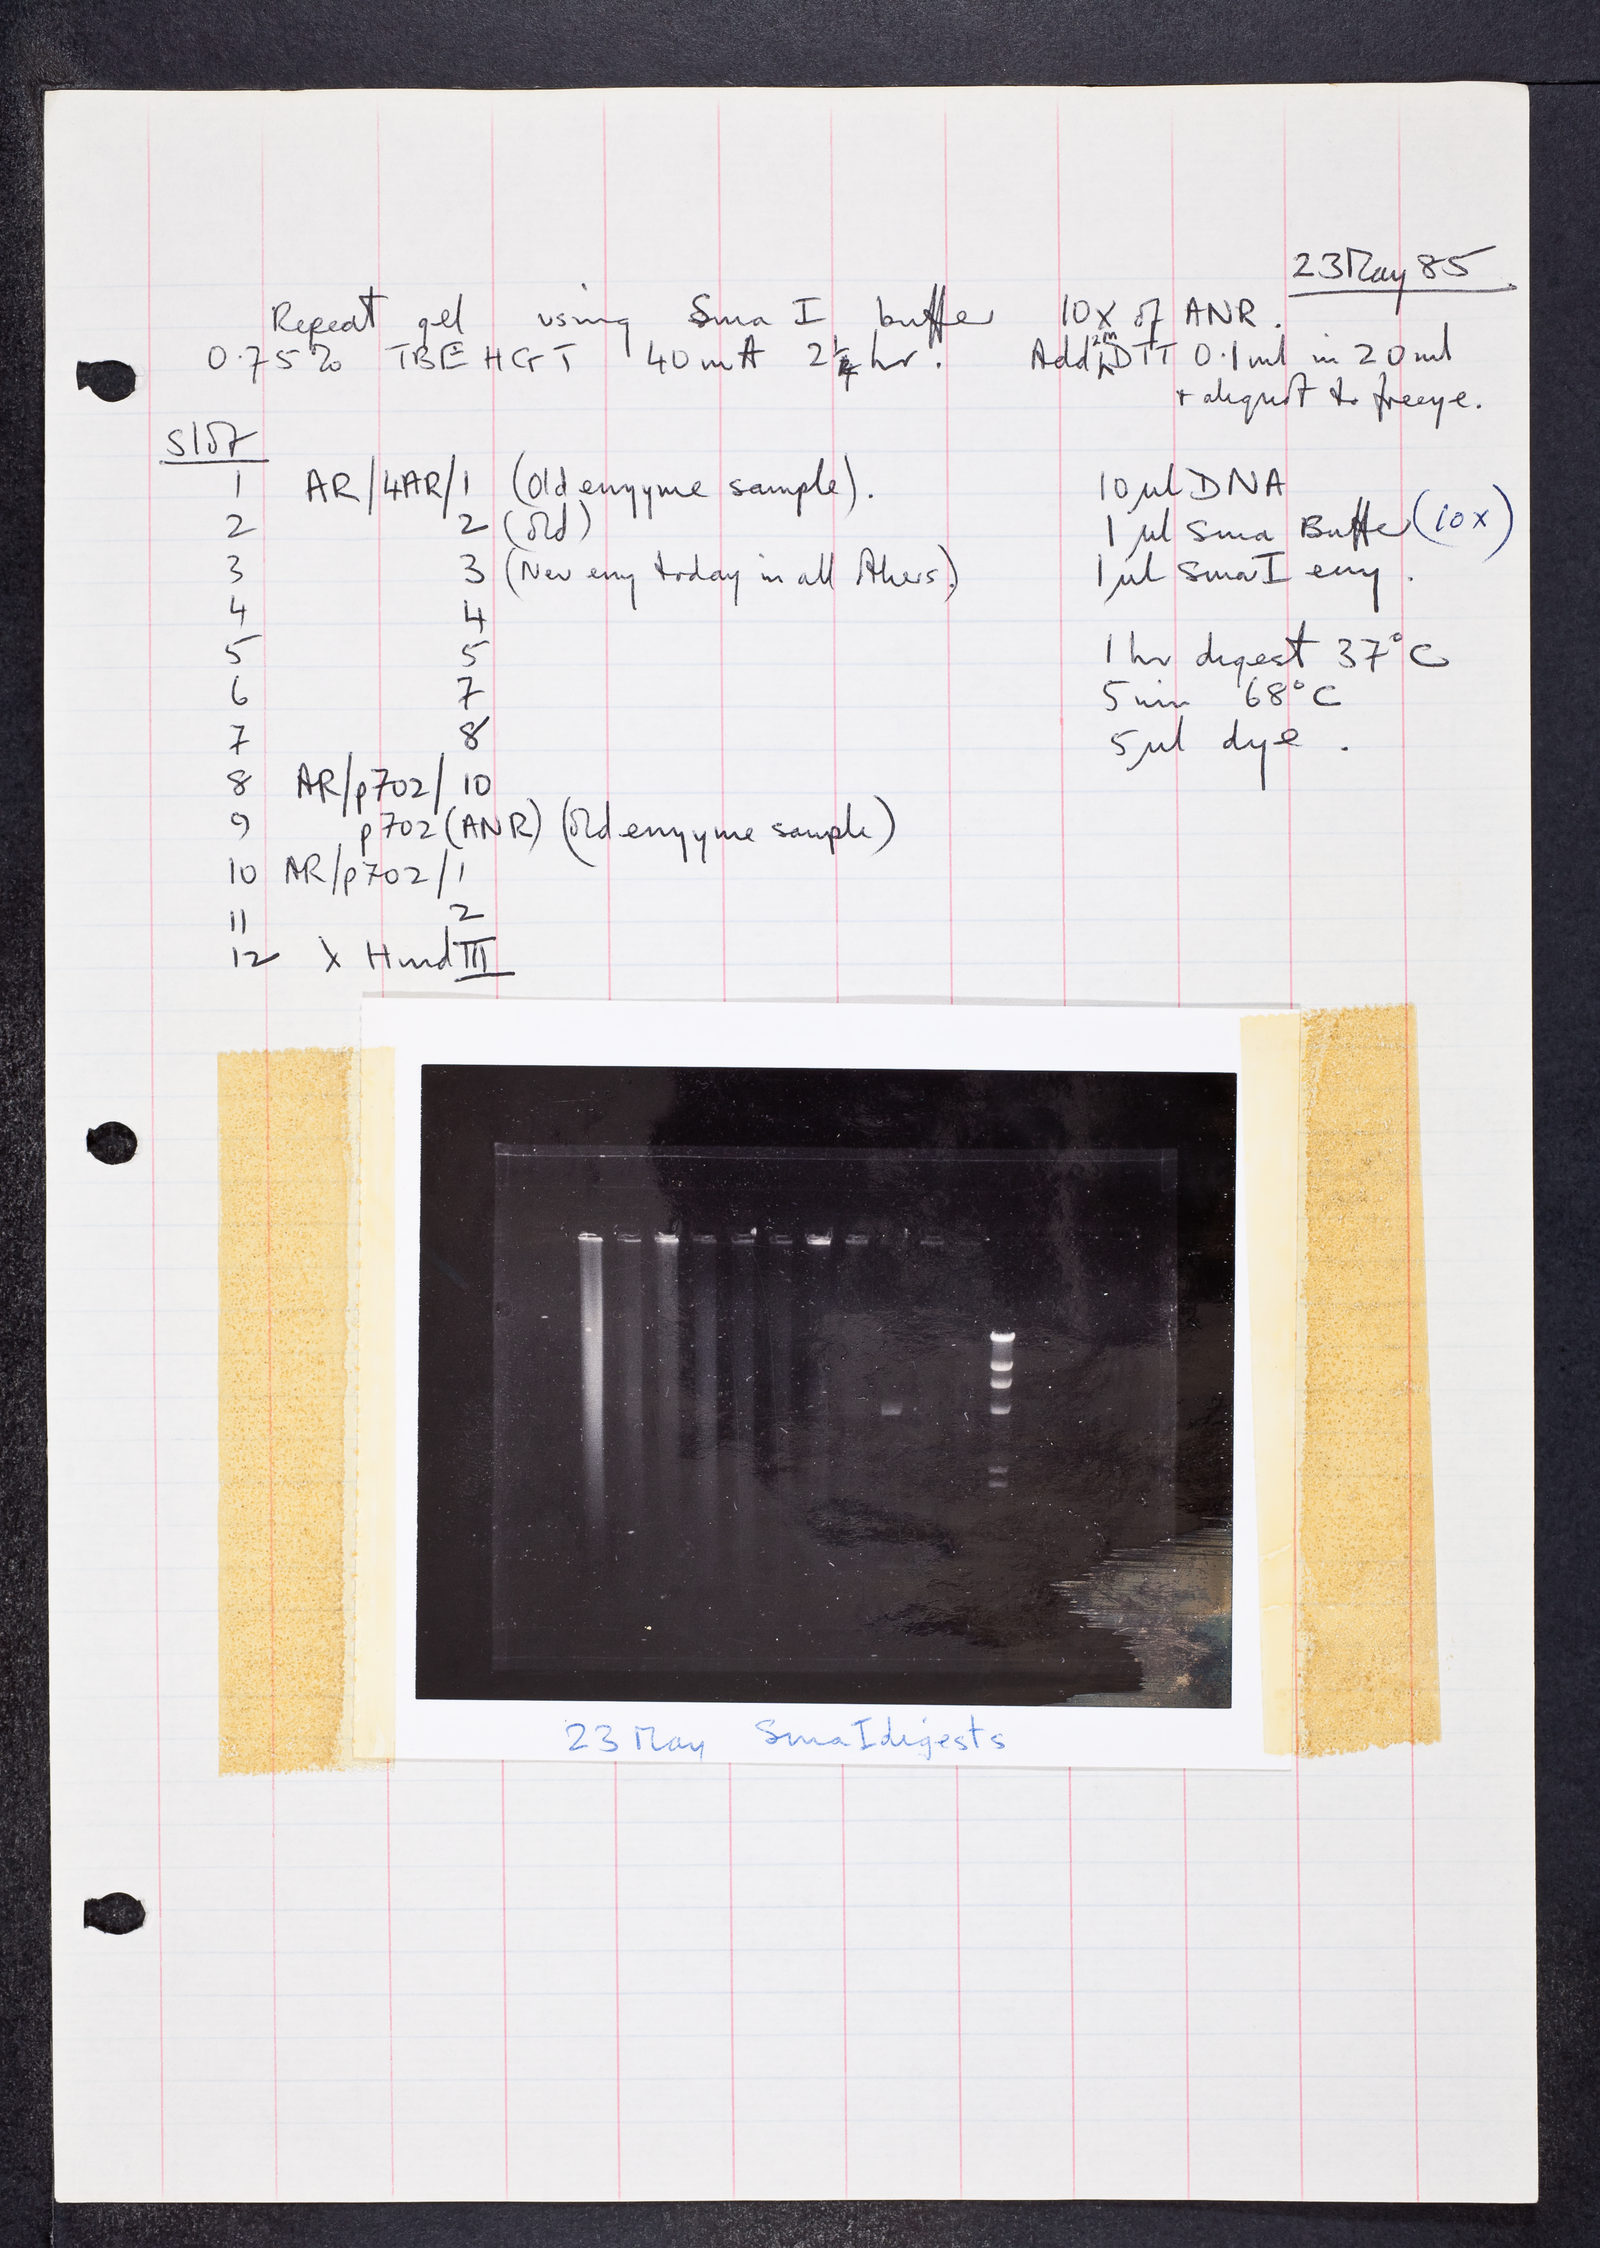 23 May 85
Repeat gel using Sma I buffer 10x of ANR.
0.75% TBE HGT 40mA 2¼ hr. Add 2M DTT 0.1ml in 20ml
+ aliquot to freeze.
Slot
1 AR/4AR/1 (Old enzyme sample). 10µl DNA
2 2 (old) 1µl Sma Buffer (10x)
3 3 (New enz today in all others.) 1µl SmaI enz.
4 4
5 5 1 hr digest 37°C
6 7 5 min 68°C
7 8 5µl dye.
8 AR/p702/10
9 p702 (ANR) (old enzyme sample)
10 AR/p702/1
11 2
12 λ Hind III
23 May Sma I digests